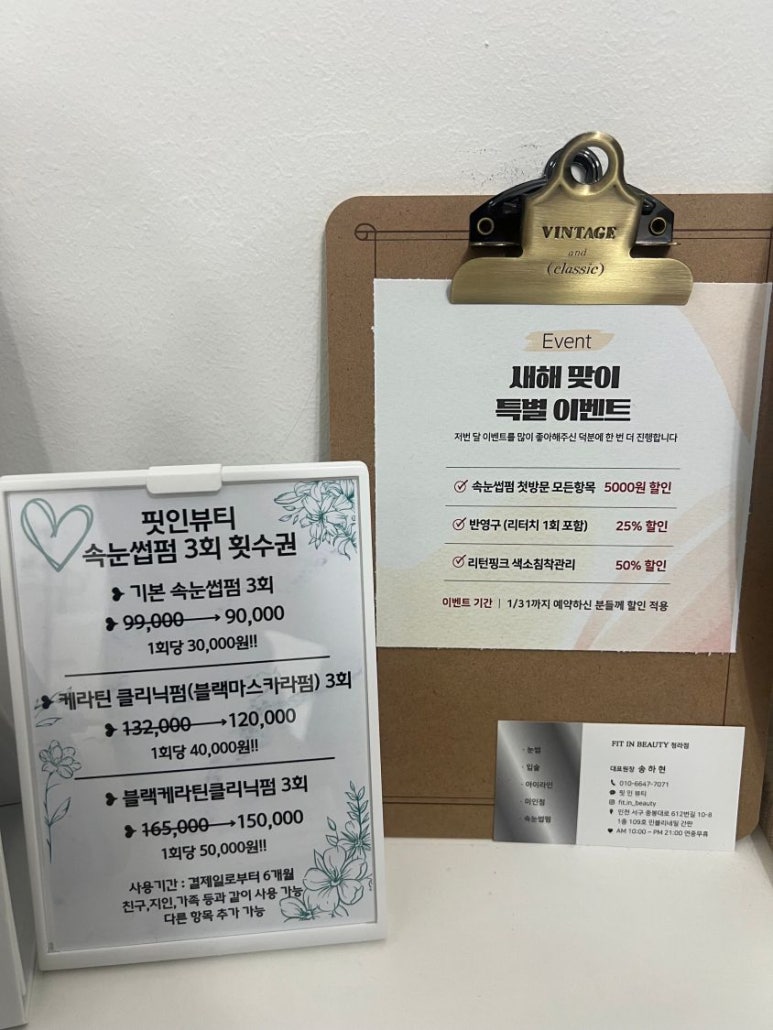 핏인뷰티
속눈썹펌 3회 횟수권
기본 속눈썹펌 3회
99,000→90,000
1회당 30,000원!!
케라틴 클리닉펌(블랙마스카라펌) 3회
132,000→120,000
1회당 40,000원!!
블랙케라틴클리닉펌 3회
165,000→150,000
1회당 50,000원!!
사용기간 : 결제일로부터 6개월
친구,지인,가족 등과 같이 사용 가능
다른 항목 추가 가능
VINTAGE
and
(classic)
Event
새해 맞이
특별 이벤트
저번 달 이벤트를 많이 좋아해주신 덕분에 한 번 더 진행합니다
속눈썹펌 첫방문 모든항목 5000원 할인
반영구 (리터치 1회 포함) 25% 할인
리턴핑크 색소침착관리 50% 할인
이벤트 기간 | 1/31까지 예약하신 분들께 할인 적용
· 눈썹
· 입술
· 아이라인
· 미인점
· 속눈썹펌
FIT IN BEAUTY 청라점
대표원장 송하현
010-6647-7071
핏 인 뷰티
fit.in_beauty
인천 서구 중봉대로 612번길 10-8
1층 109호 민블리네일 간판
AM 10:00 ~ PM 21:00 연중무휴